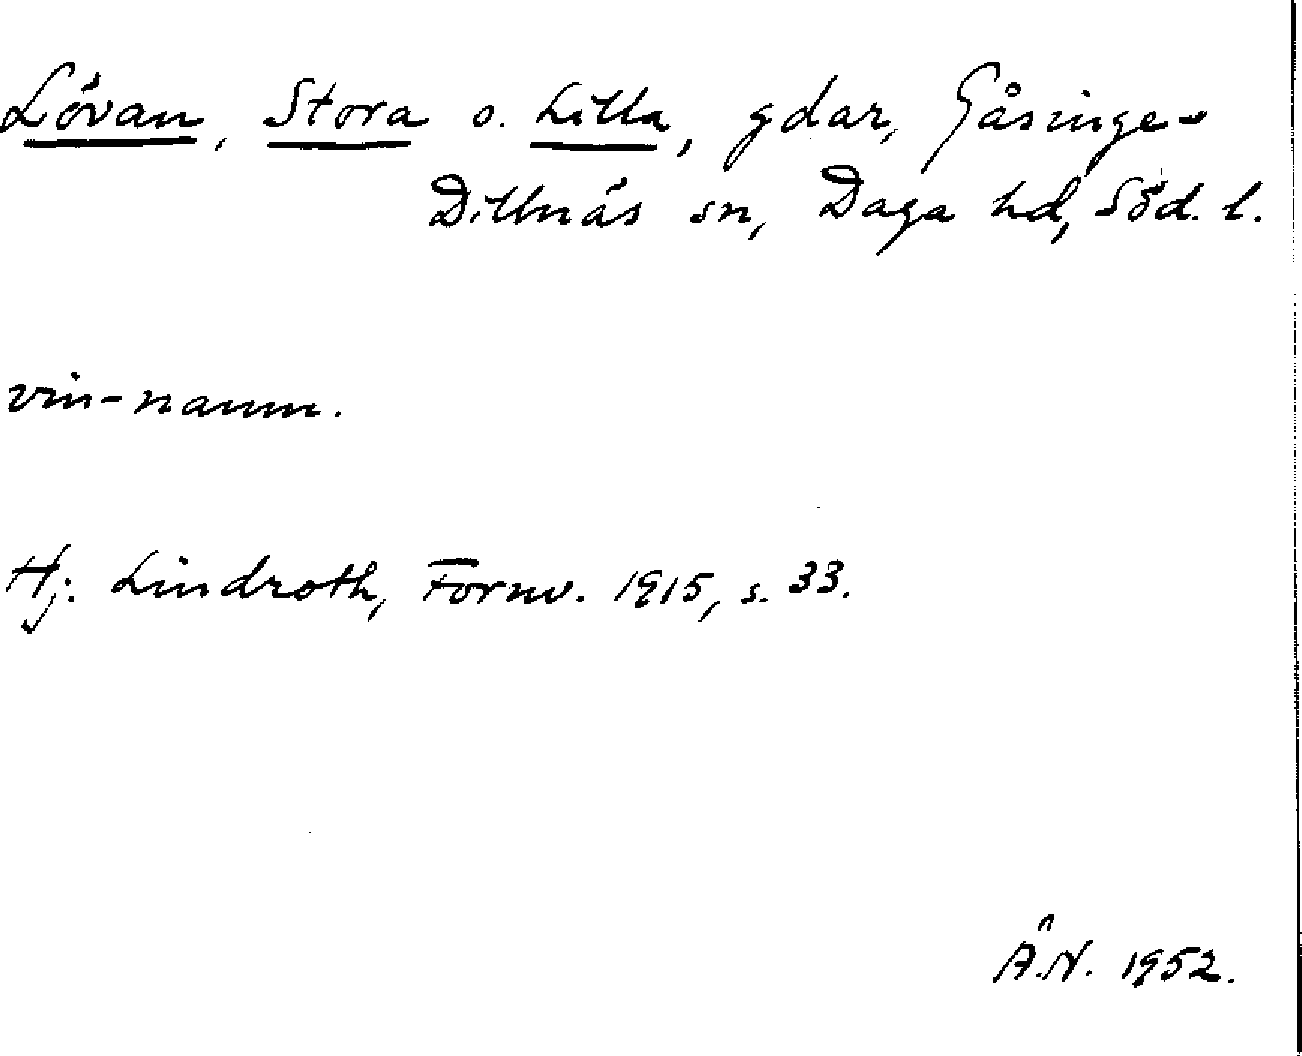 Lövan, Stora o. Lilla, gdar, Gåsinge-
Dillnäs sn, Daga hd, Söd. l.
vin-namn.
Hj. Lindroth, Fornv. 1915, s. 33.
Å.N. 1952.